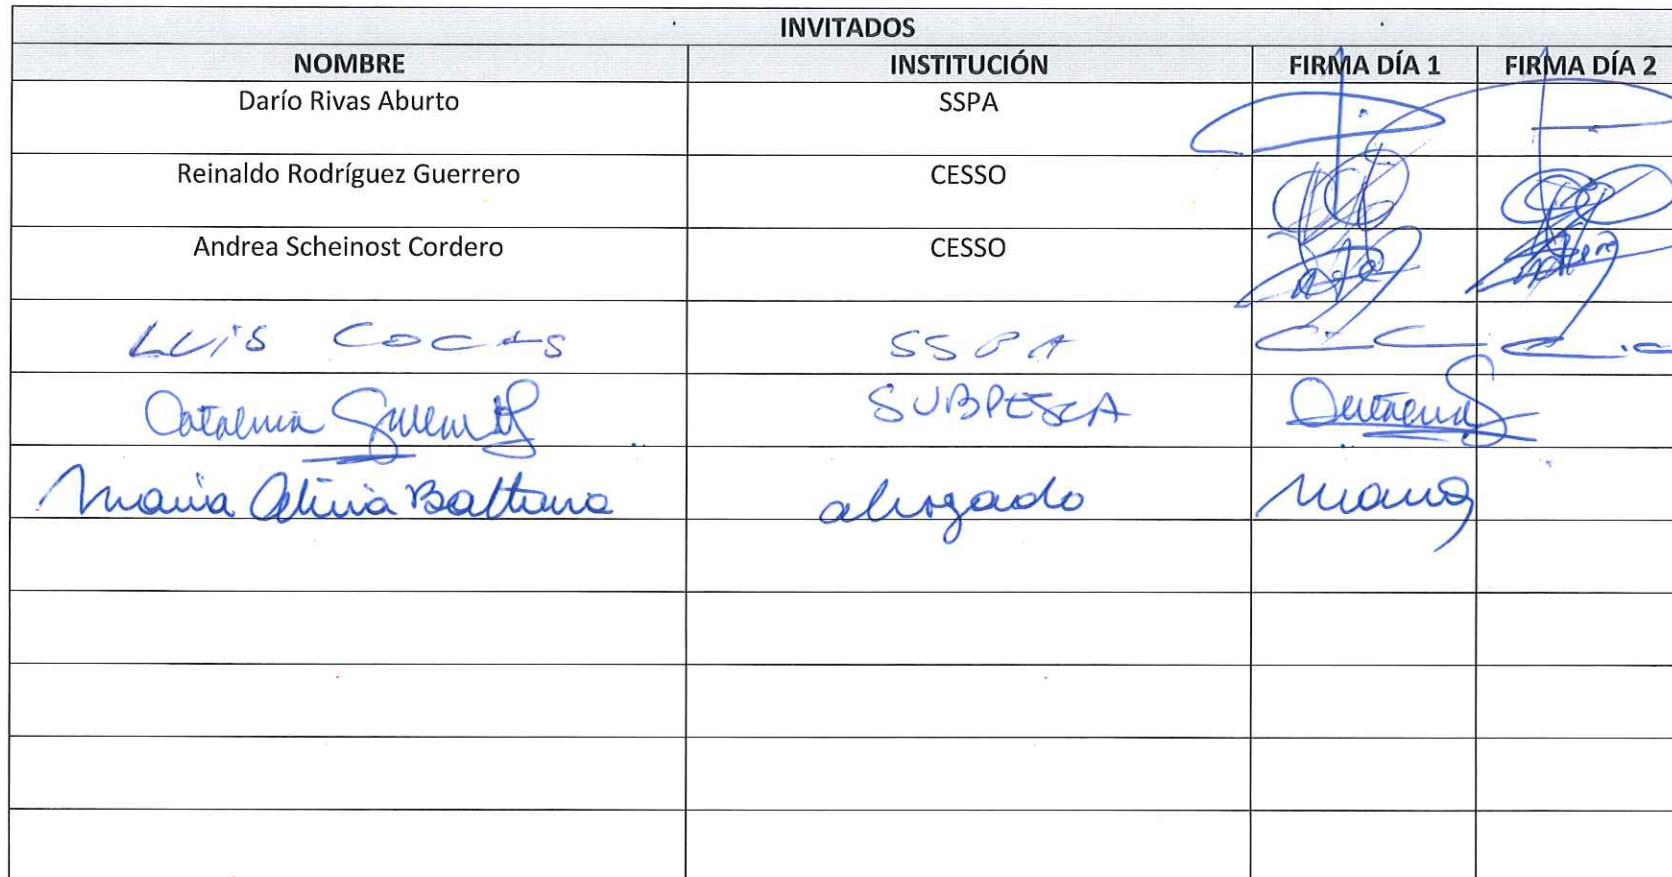 INVITADOS
NOMBRE INSTITUCIÓN FIRMA DÍA 1 FIRMA DÍA 2
Darío Rivas Aburto SSPA
Reinaldo Rodríguez Guerrero CESSO
Andrea Scheinost Cordero CESSO
LUIS COCAS SSPA
Catalina SUBPESCA
Maria abogado Maria